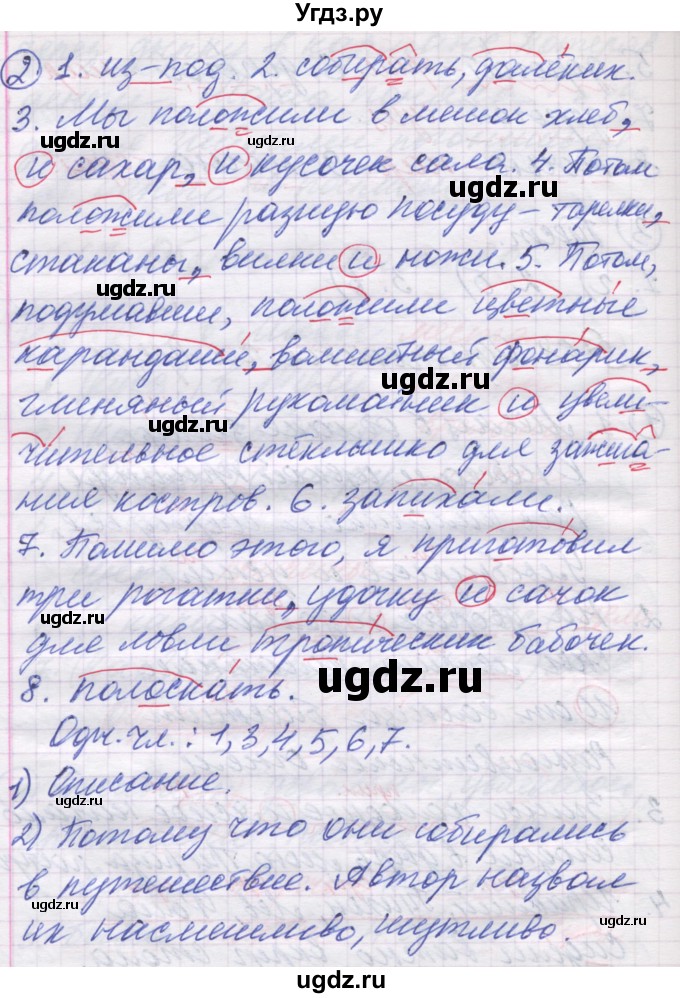 Угдз.ру
② 1. из-под. 2. собирать, далёких.
3. Мы положили в мешок хлеб,
ugdz.ru ugdz.ru
и сахар, и кусочек сала. 4. Потом
ugdz.ru
положили разную посуду - тарелки,
стаканы, вилки и ножи. 5. Потом,
ugdz.ru
подумавши, положили цветные
карандаши, волшебный фонарик,
ugdz.ru
глиняный рукомойник и увели-
ugdz.ru
чительное стёклышко для зажига-
ния костров. 6. запихали.
ugdz.ru
7. Помимо этого, я приготовил
три рогатки, удочку и сачок
ugdz.ru
для ловли тропических бабочек.
ugdz.ru
8. полоскать.
Одн. чл.: 1, 3, 4, 5, 6, 7.
1) Описание.
ugdz.ru ugdz.ru
2) Потому что они собирались
в путешествие. Автор назвал
ugdz.ru
их насмешливо, шутливо.
ugdz.ru
ugdz.ru